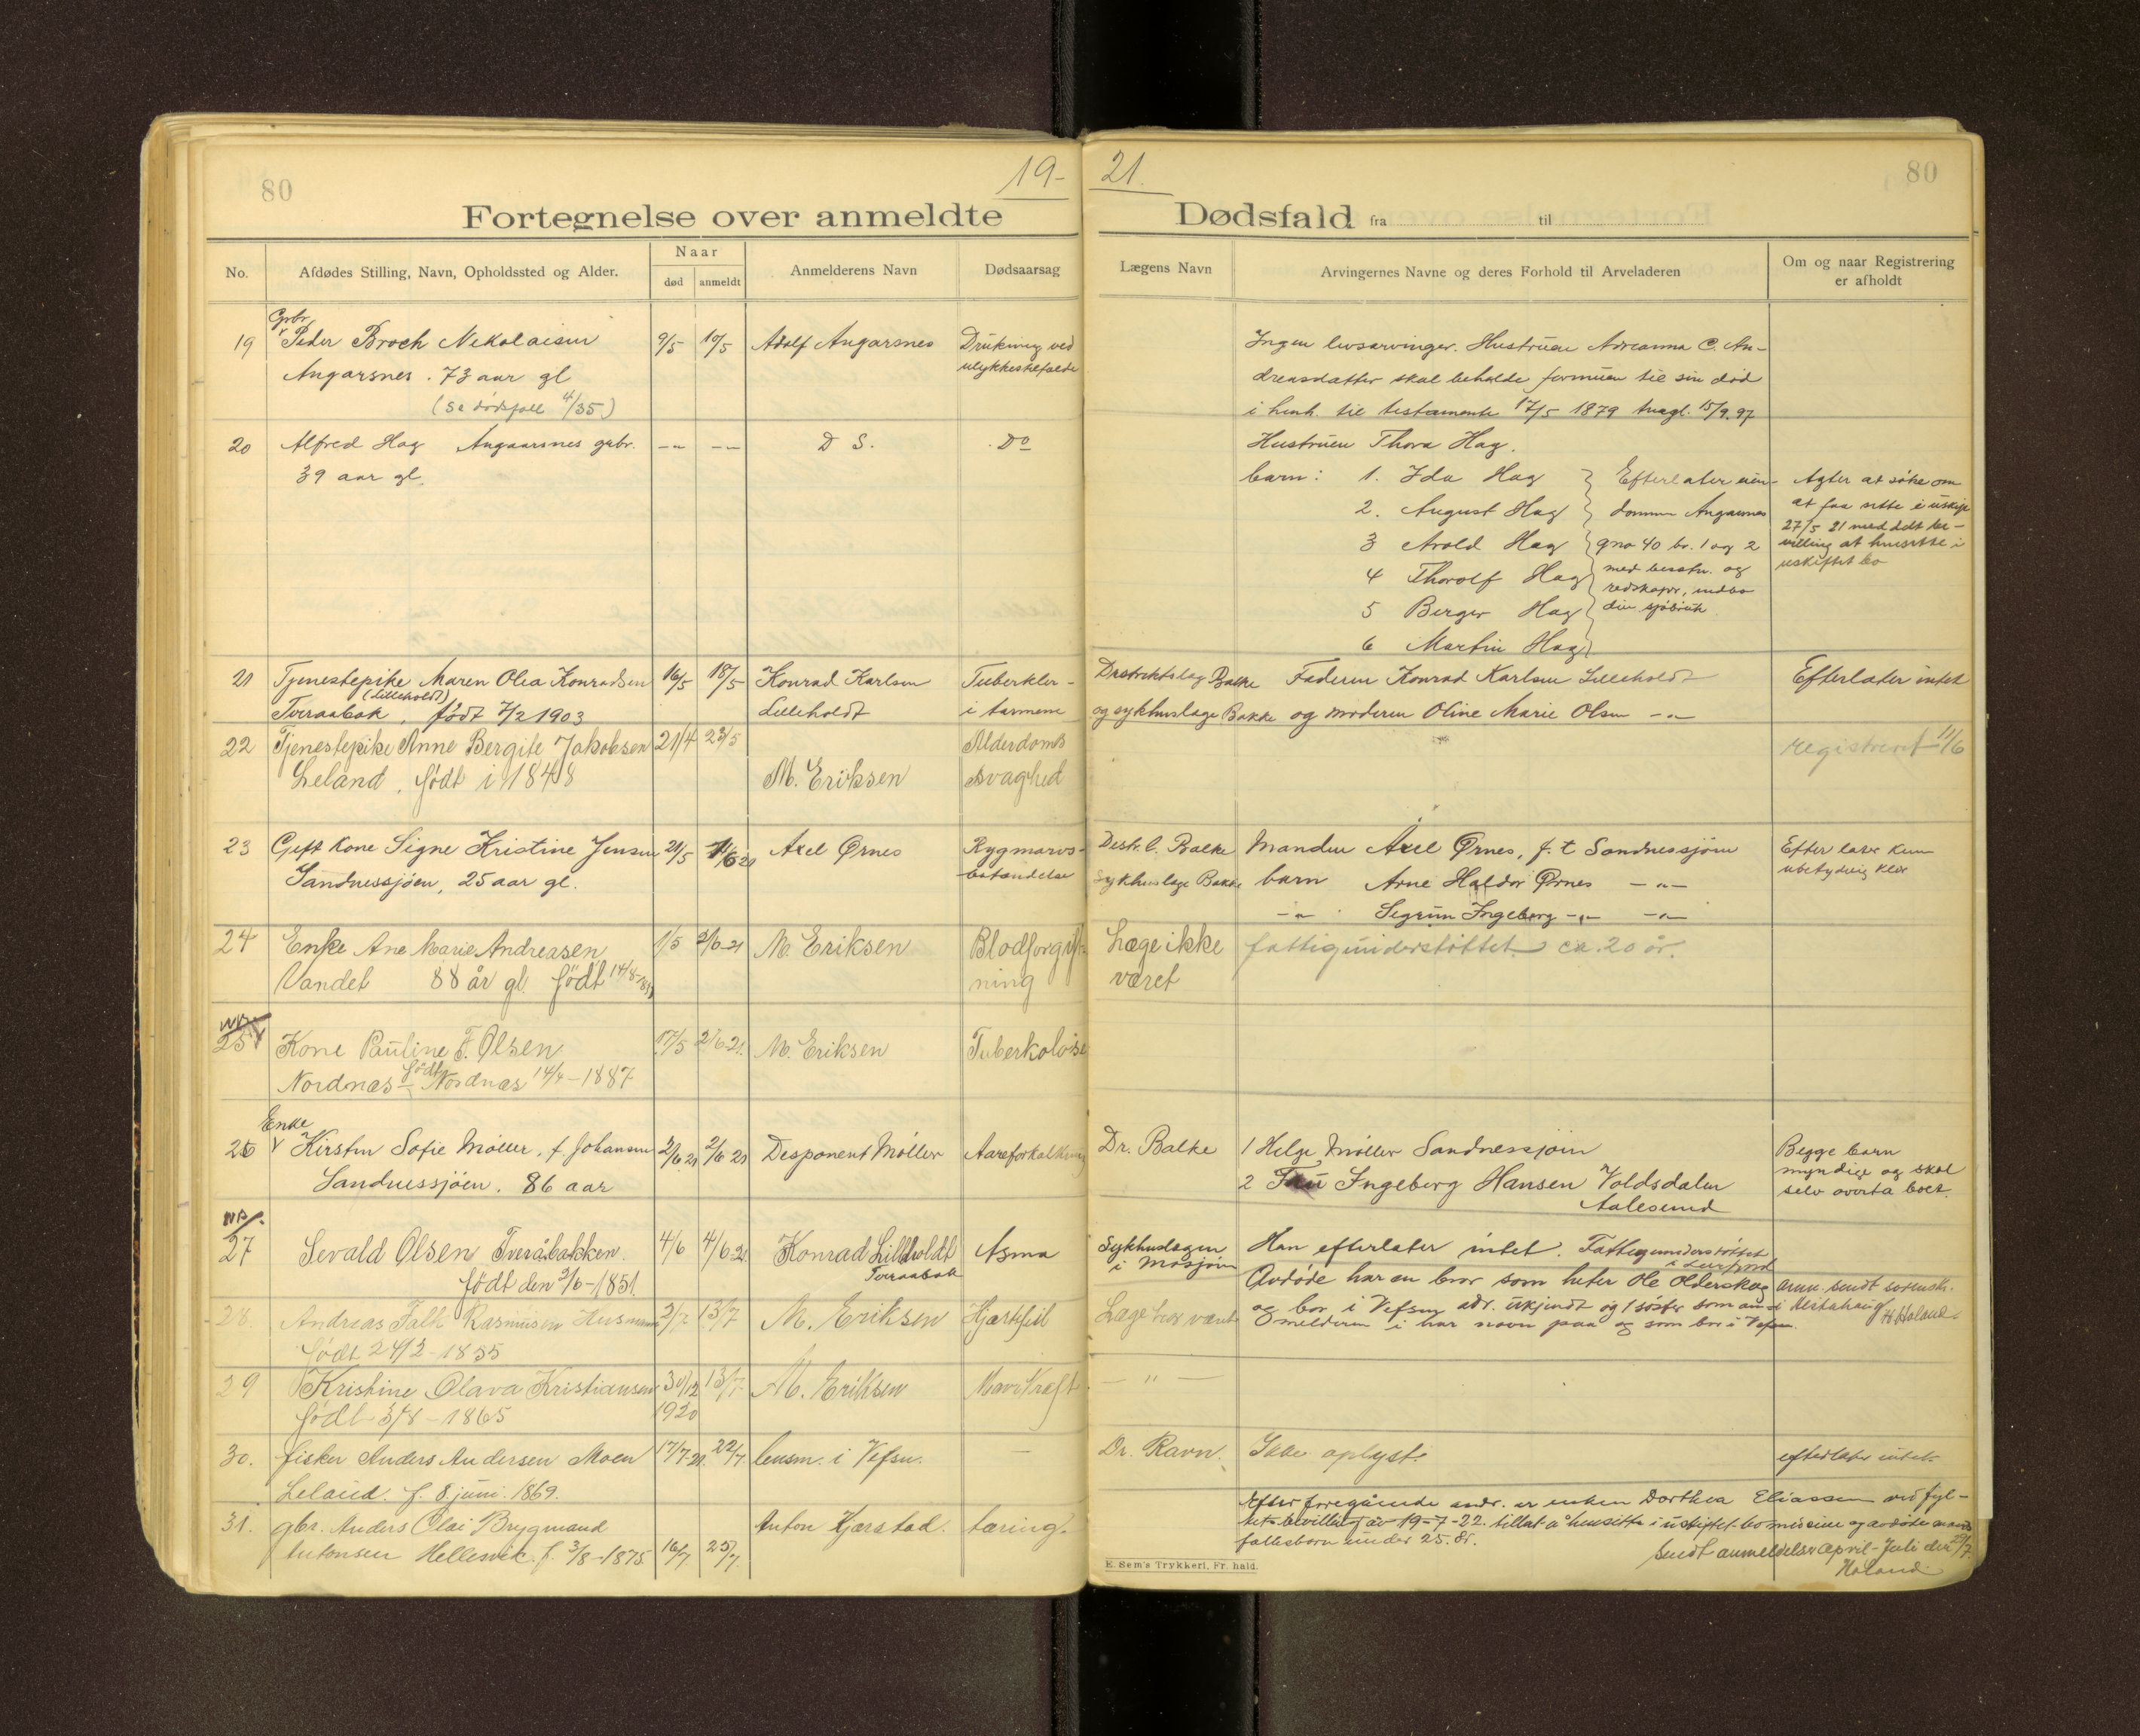 80
19-
Fortegnelse over anmeldte
No.
Afdødes Stilling, Navn, Opholdssted og Alder.
Naar
død
anmeldt
Anmelderens Navn
Dødsaarsag
19
Gbr.
Peder Broch Nikolaisen
9/5
10/5
Adolf Angarsnes
Drukning ved
Angarsnes. 73 aar gl
ulykkestilfælde
(se dødsfall 4/35)
20
Alfred Hag Angaarsnes gbr.
D S.
Do
39 aar gl.
21
Tjenestepike Maren Olea Konradsen
16/5
18/5
Konrad Karlsen
Tuberkler-
(Lilleholdt)
Tveraabak, født 7/2 1903
Lilleholdt
i tarmene
22
Tjenestepike Anne Bergite Jakobsen
21/4
23/5
Alderdoms
Leland, født i 1848
M. Eriksen
svaghed
23
Gift kone Signe Kristine Jensen
21/5
1/6 21
Axel Ørnes
Rygmarvs-
Sandnessjøen, 25 aar gl.
betændelse
24
Enke Ane Marie Andreasen
1/5
2/6-21
M. Eriksen
Blodforgift-
Vandet 88 år gl. født 14/8-
ning
NB
25
Kone Pauline F. Olsen
17/5
2/6-21.
M. Eriksen
Tuberkolose
født
Nordnæs Nordnæs 14/4-1887
Enke
26
Kirsten Sofie Møller, f. Johansen
2/6 21
2/6 21
Disponent Møller
Aareforkalkning
Sandnessjøen. 86 aar
NB.
27
Sevald Olsen Tveråbakken.
4/6
4/6-21
Konrad Lilleholdt
Asma
Tveraabak
født den 3/6-1851.
28.
Andreas Falk Rasmussen Husmann
2/7
13/7
M. Eriksen
Hjertefeil
født 24/2-1855
29
Kristine Olava Kristiansen
30/12
13/7
M. Eriksen
Mavekræft
født 3/8-1865
1920
30.
fisker Anders Andersen Moen
17/7-21.
22/7.
lensm. i Vefsn.
—
Leland. f. 8 juni 1869.
31.
gbr. Anders Olai Brygmand
Anton Kjærstad.
tæring.
Antonsen Hellesvik. f. 3/8-1875
16/7
25/7.
21.
80
Dødsfald fra til
Lægens Navn
Arvingernes Navne og deres Forhold til Arveladeren
Om og naar Registrering
er afholdt
Ingen livsarvinger. Hustruen Adreanna C. An-
dreasdatter skal beholde formuen til sin død
i henh. til testamente 17/5 1879 tingl. 15/9 97
Hustruen Thora Hag.
barn: 1. Ida Hag
Efterlater eien-
Agter at søke om
2. August Hag
dommen Angarsnes
at faa sitte i uskifte
3 Arold Hag
gno 40 br. 1 og 2
27/5 21 meddelt be-
villing at hensitte i
4 Thorolf Hag
med besætn. og
uskiftet bo
redskaper, indbo
5 Berger Hag
6 Martin Hag
Distriktslæge Balke
Faderen Konrad Karlsen Lilleholdt
Efterlater intet
og sykhuslæge Bakke
og moderen Oline Marie Olsen -"-
registrert 11/6
Distr.l. Balke
Manden Axel Ørnes, f.t Sandnessjøen
Efterlater kun
Sykhuslæge Bakke
barn Arne Haldor Ørnes -"-
ubetydelig klær
-"- Sigrun Ingeborg -"- -"-
Læge ikke
fattigunderstøttet ca. 20 år.
været
Dr. Balke
1 Helge Møller Sandnessjøen
Begge barn
2 Fru Ingeborg Hansen Voldsdalen
myndige og skal
Aalesund
selv overta boet.
Sykhuslægen
i Mosjøen
Han efterlater intet. Fattigunderstøttet
i Leirfjord
Avdøde har en bror som heter Ole Olderskog
anm. sendt sorensk.
Læge har været
og bor i Vefsn adr. ukjendt og 1 søster som an-
i Alstahaug
melderen i har navn paa og som bor i Vefsn.
H. Høland.
— " —
Dr. Ravn.
Ikke oplyst.
efterlater intet.
Efter foregående andr. er enken Dorthea Eliassen ved fyl-
kets bevilling av 19-7-22. tillat å hensitte i uskiftet bo med sine og avdøde mands
fællesbarn under 25. år.
Sendt anmeldelse April-Juli den 29/7.
Høland
E. Sem's Trykkeri, Fr. hald.